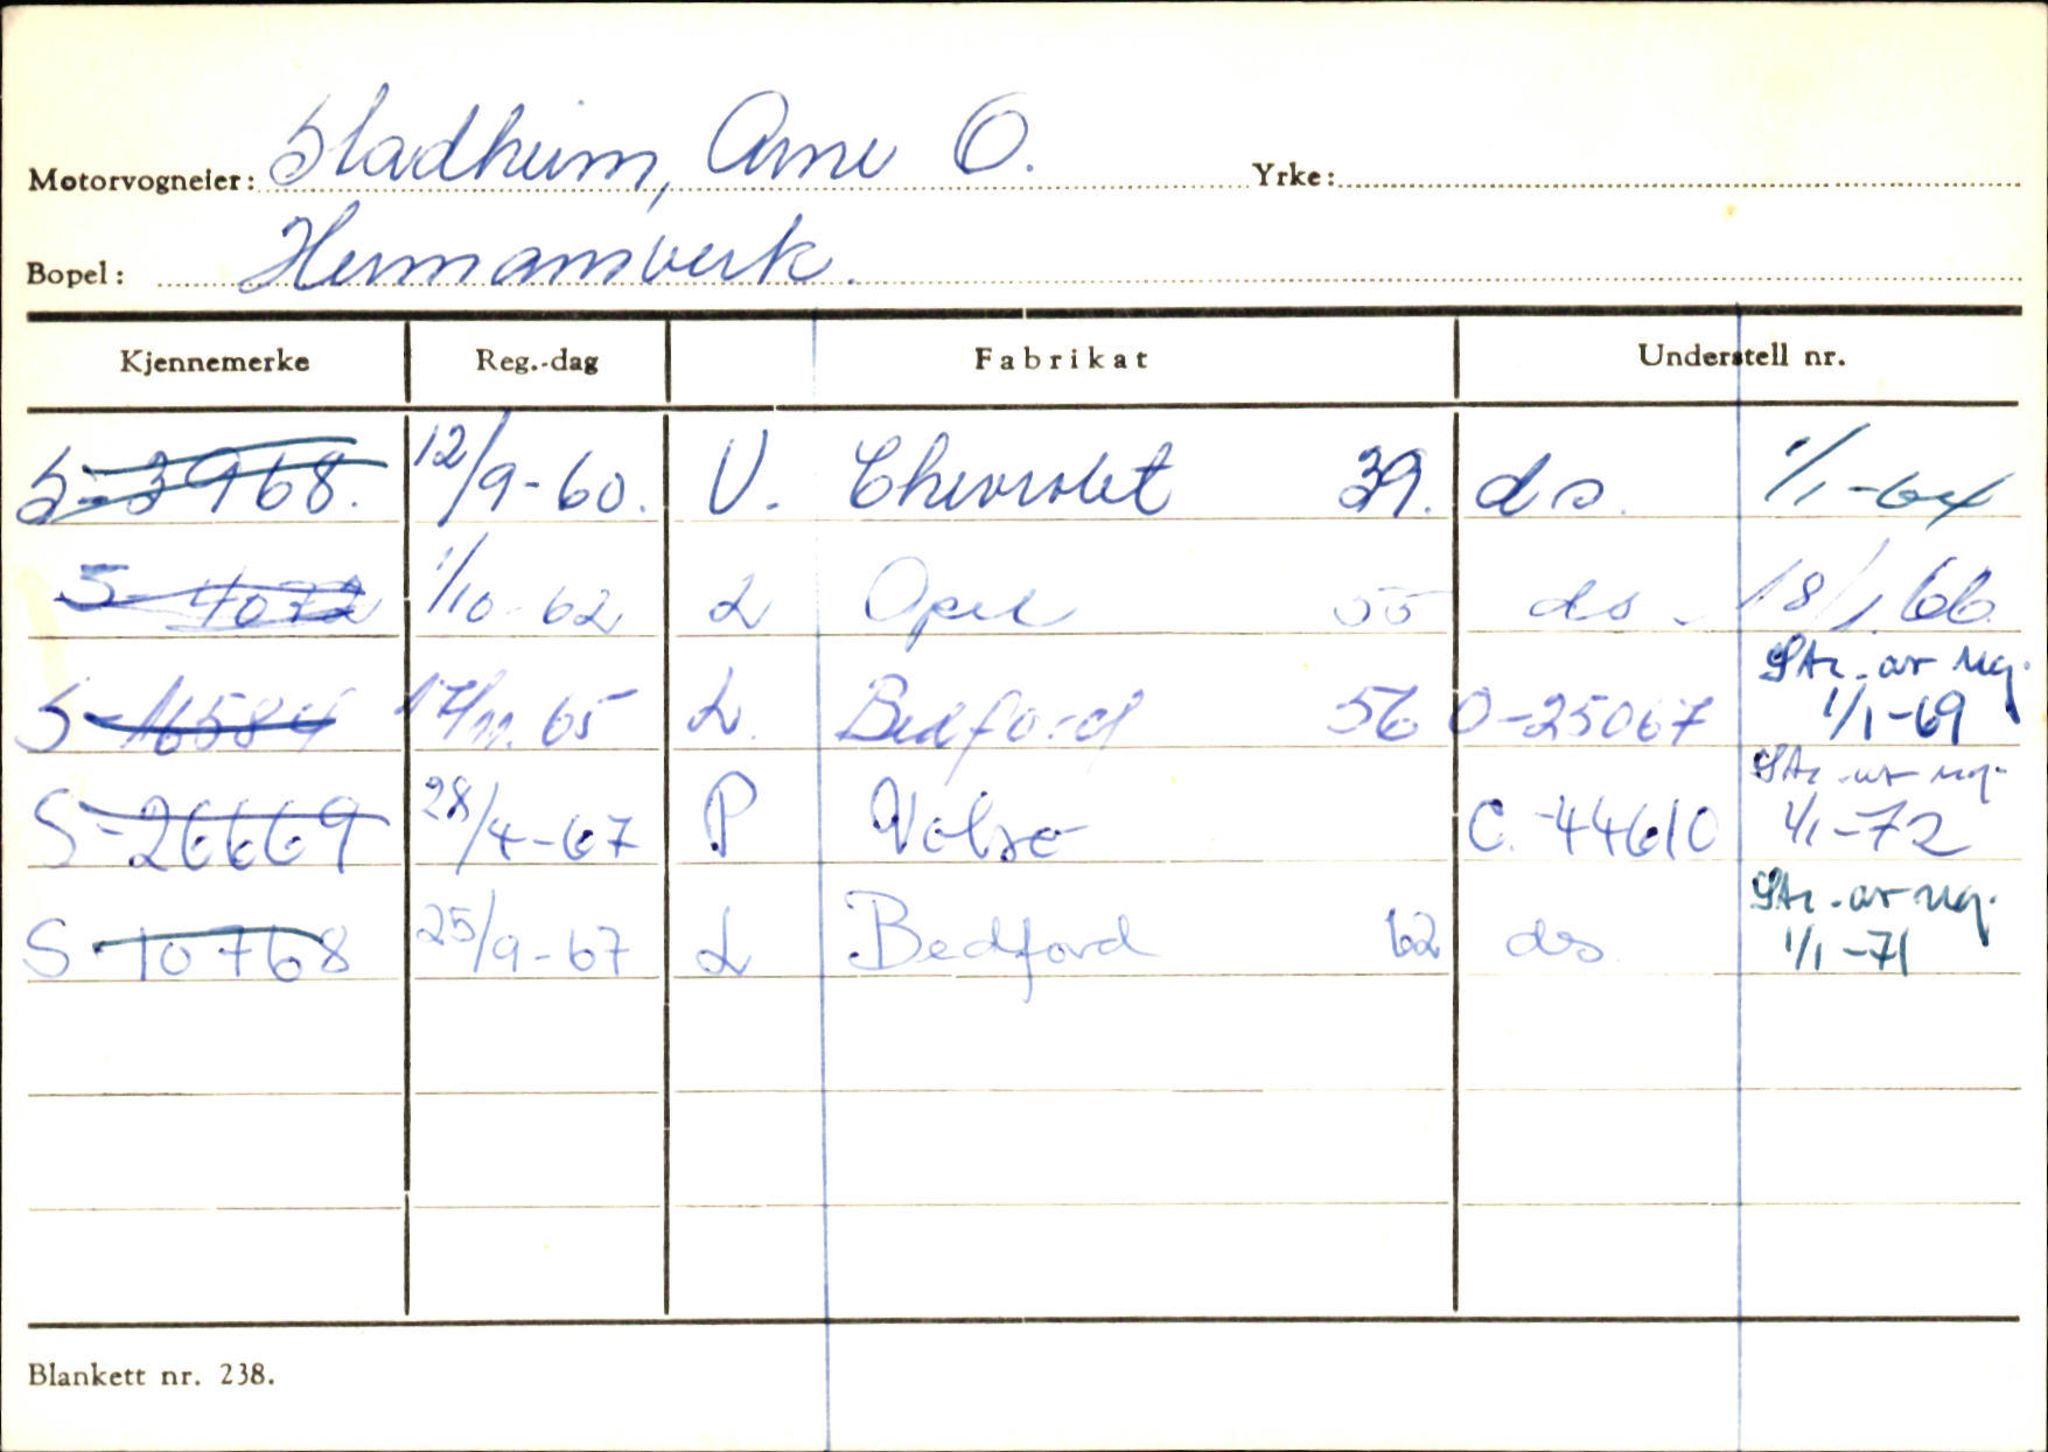 Motorvogneier: Stadheim, Arne O. Yrke:
Bopel: Hermansverk.
Kjennemerke Reg.-dag Fabrikat Understell nr.
S-3968. 12/9-60. V. Chevrolet 39. ds. 1/1-64
S-4072 1/10-62 L Opel 55 ds- 18/1 66
S-16584 17/11.65 L. Bedford 56 O-25067 Str. av reg. 1/1-69
S-26669 28/4-67 P Volvo C.-44610 Str. av reg. 1/1-72
S-10768 25/9-67 L Bedford 62 ds Str. av reg. 1/1-71
Blankett nr. 238.